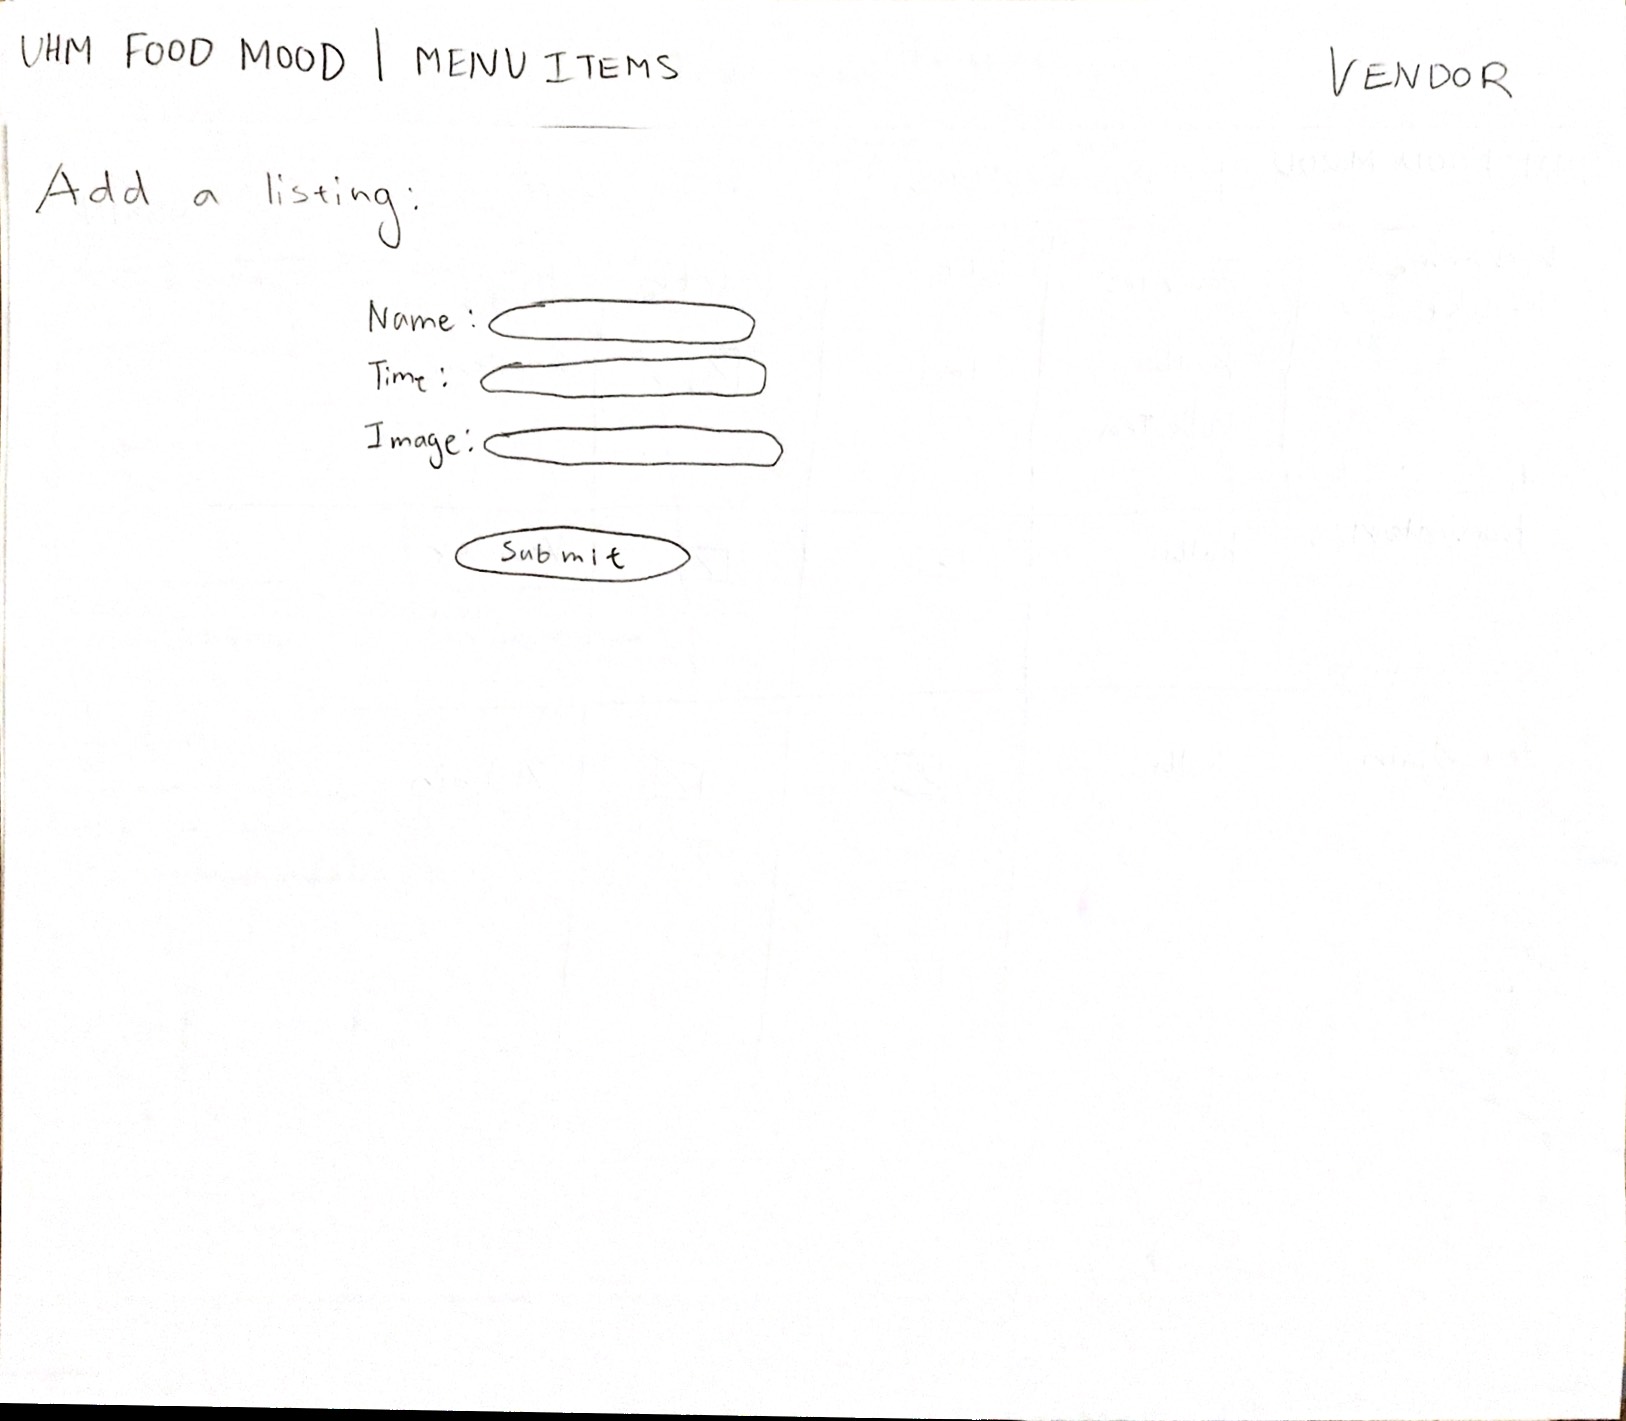 UHM FOOD MOOD | MENU ITEMS
VENDOR
Add a listing:
Name:
Time:
Image:
Submit